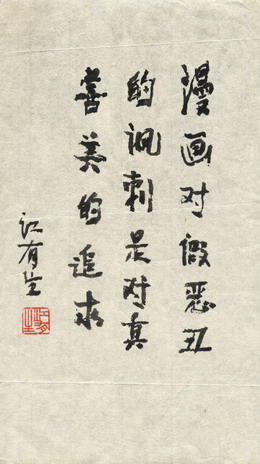 漫画对假恶丑
的讽刺是对真
善美的追求
江有生